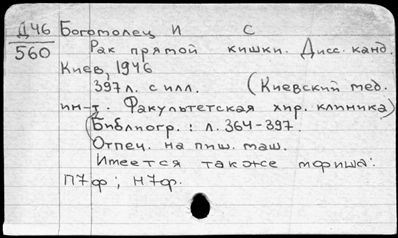 Д46 Богомолец И С
560 Рак прямой кишки. Дисс. канд.
Киев, 1946
397 л. с илл. (Киевский мед.
ин-т. Факультетская хир. клиника)
(Библиогр.: л. 364-397.
Отпеч. на пиш. маш.
Имеется также мфиша:
П7ф; Н7ф.